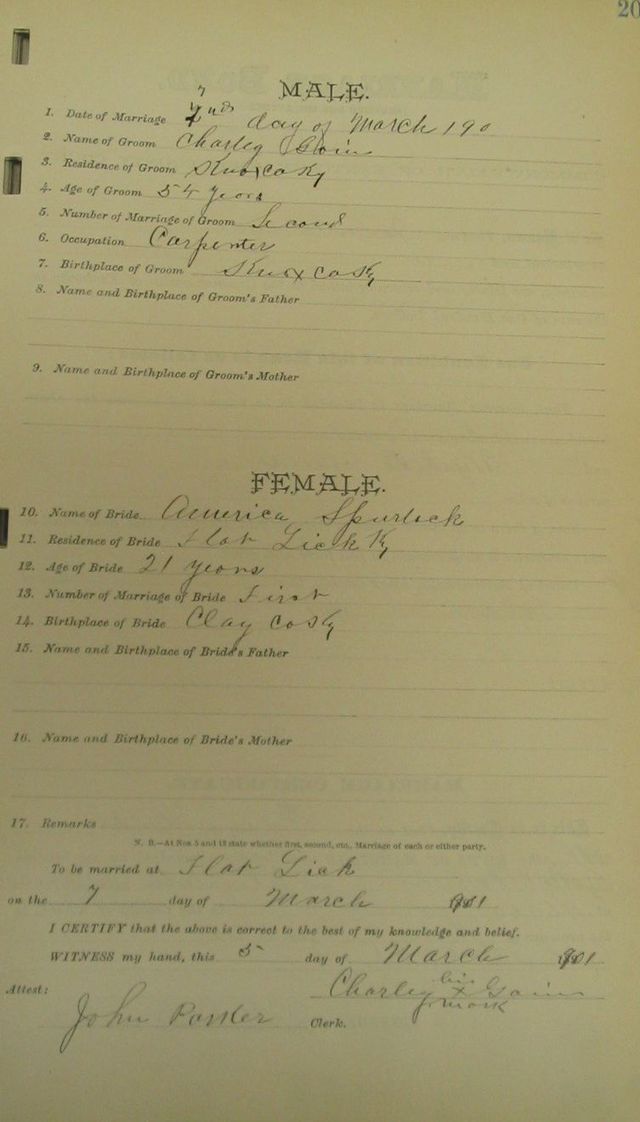 20
MALE.
7
1. Date of Marriage 2nd day of March 190
2. Name of Groom Charley Goin
3. Residence of Groom Knox co Ky
4. Age of Groom 54 years
5. Number of Marriage of Groom Second
6. Occupation Carpenter
7. Birthplace of Groom Knox co Ky
8. Name and Birthplace of Groom's Father
9. Name and Birthplace of Groom's Mother
FEMALE.
10. Name of Bride America Spurlock
11. Residence of Bride Flat Lick Ky
12. Age of Bride 21 years
13. Number of Marriage of Bride First
14. Birthplace of Bride Clay co Ky
15. Name and Birthplace of Bride's Father
16. Name and Birthplace of Bride's Mother
17. Remarks
N. B.—At Nos. 5 and 13 state whether first, second, etc., Marriage of each or either party.
To be married at Flat Lick
on the 7 day of March 1901
I CERTIFY that the above is correct to the best of my knowledge and belief.
WITNESS my hand, this 5 day of March 1901
Attest: Charley his x mark Goin
John Parker Clerk.